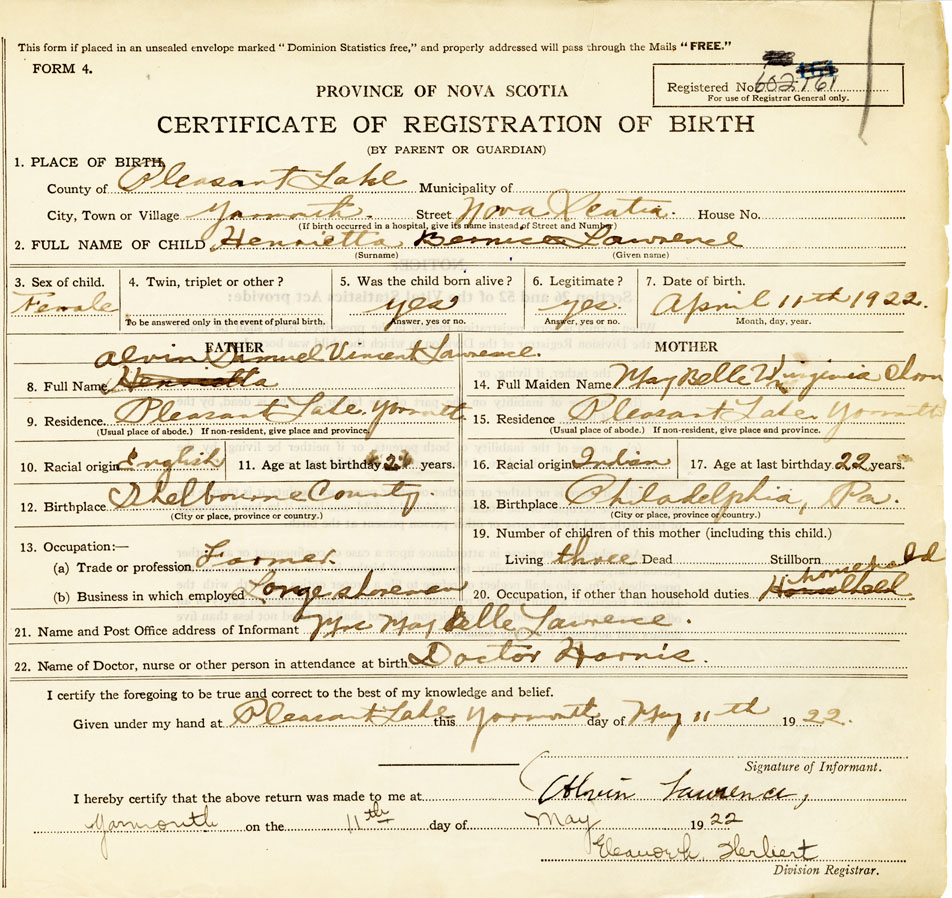 This form if placed in an unsealed envelope marked "Dominion Statistics free," and properly addressed will pass through the Mails "FREE."
FORM 4.
Registered No. 602761 164
For use of Registrar General only.
PROVINCE OF NOVA SCOTIA
CERTIFICATE OF REGISTRATION OF BIRTH
(BY PARENT OR GUARDIAN)
1. PLACE OF BIRTH
County of Pleasant Lake Municipality of
City, Town or Village Yarmouth. Street Nova Scatia. House No.
(If birth occurred in a hospital, give its name instead of Street and Number)
2. FULL NAME OF CHILD Henrietta Bernice Lawrence
(Surname) (Given name)
3. Sex of child. 4. Twin, triplet or other? 5. Was the child born alive? 6. Legitimate? 7. Date of birth.
Female yes yes April 11th 1922.
To be answered only in the event of plural birth. Answer, yes or no. Answer, yes or no. Month, day, year.
FATHER MOTHER
Alvin Samuel Vincent Lawrence.
8. Full Name Henrietta 14. Full Maiden Name May Belle Virginia
9. Residence. Pleasant Lake Yarmouth 15. Residence Pleasant Lake Yarmouth
(Usual place of abode.) If non-resident, give place and province. (Usual place of abode.) If non-resident, give place and province.
10. Racial origin English 11. Age at last birthday 21 years. 16. Racial origin Indian 17. Age at last birthday 22 years.
12. Birthplace Shelbourne County. 18. Birthplace Philadelphia, Pa.
(City or place, province or country.) (City or place, province or country.)
13. Occupation:— 19. Number of children of this mother (including this child.)
(a) Trade or profession Farmer. Living three Dead Stillborn
(b) Business in which employed Longe shoreman 20. Occupation, if other than household duties. Household household
21. Name and Post Office address of Informant Mrs May Belle Lawrence.
22. Name of Doctor, nurse or other person in attendance at birth Doctor Harris.
I certify the foregoing to be true and correct to the best of my knowledge and belief.
Given under my hand at Pleasant Lake this Yarmouth day of May 11th 1922.
Signature of Informant.
I hereby certify that the above return was made to me at Alvin Lawrence,
Yarmouth on the 11th day of May 1922
Herbert
Division Registrar.